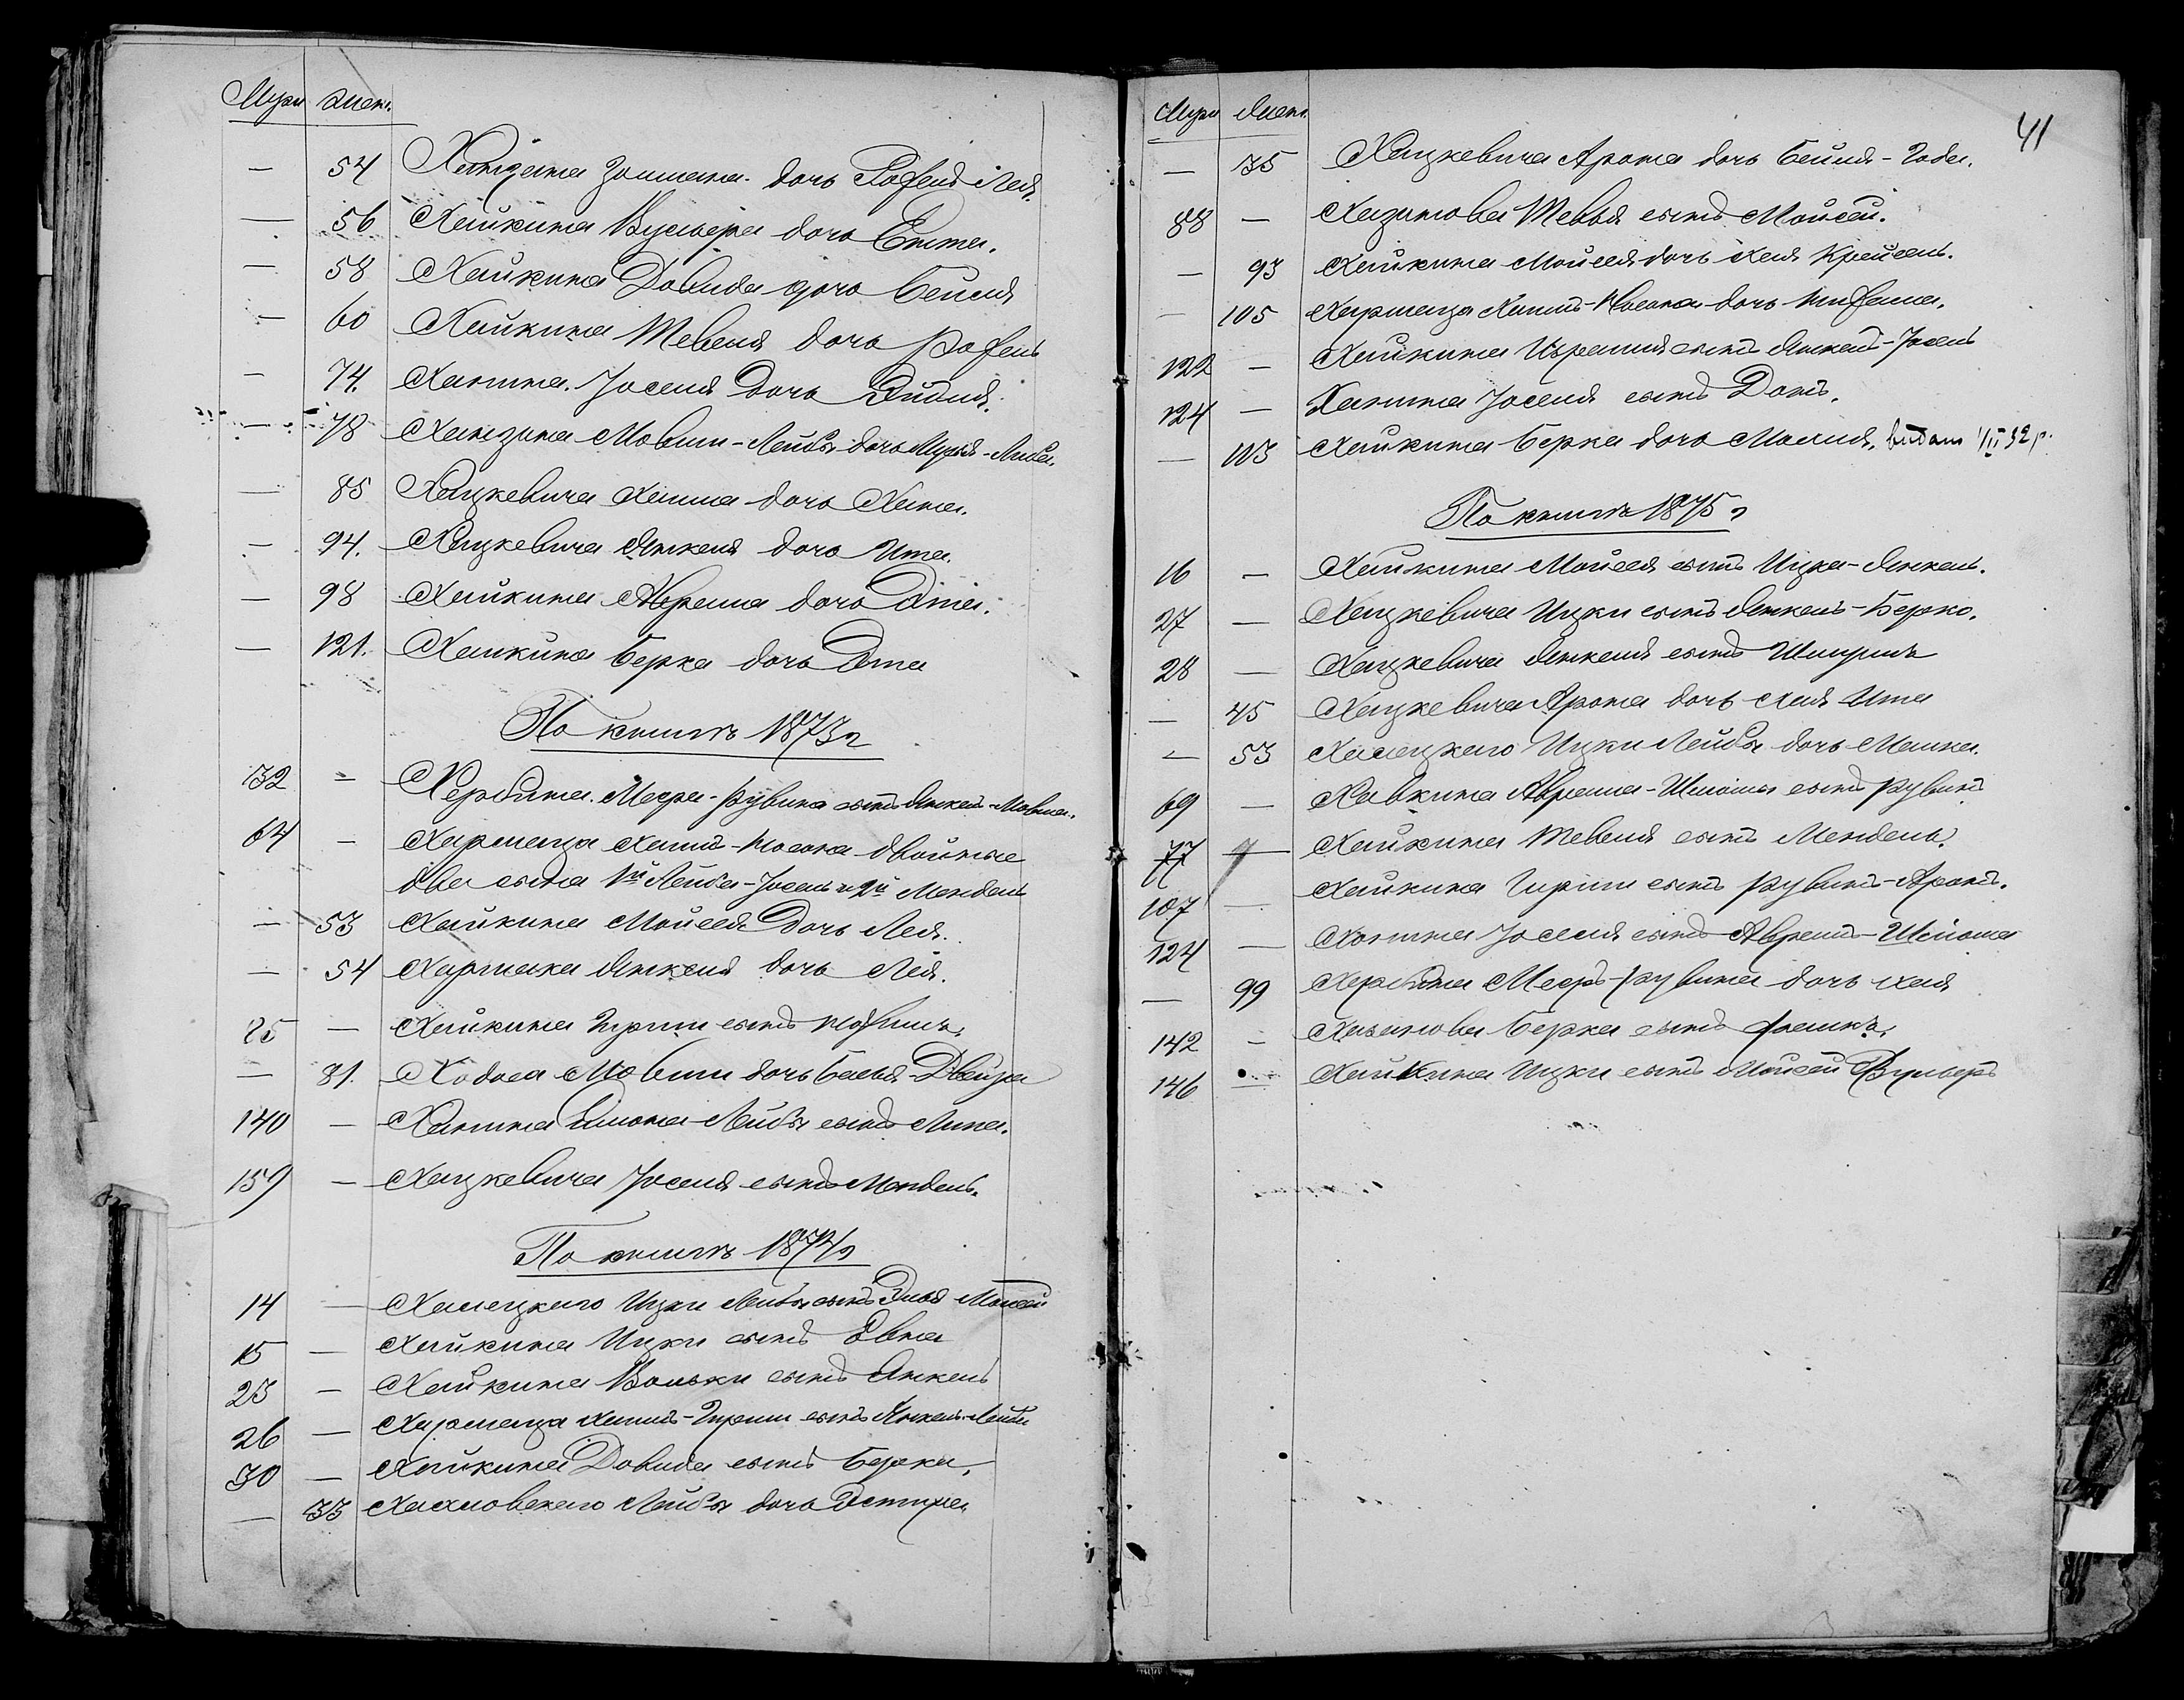 Муж. Жен.
— 54 Хитзана Зоммана дочь Рохель Лея.
— 56 Хайкина Вульфа дочь Етта.
— 58 Хайкина Довида дочь Бейля
— 60 Хайкина Тевеля дочь Рохель
— 74. Ханина Іоселя дочь Эйдля.
— 78 Ханзина Мовши-Лейбы дочь Мерья-Либа.
— 85 Хацкевича Хаима дочь Хана.
— 94. Хацкевича Янкеля дочь Ита.
— 98 Хайкина Абрама дочь Дина.
— 121. Хайкина Берка дочь Эта
По книгѣ 1873 г
32 — Хербина Меера-Рувина сынъ Янкель-Мовша.
64 — Хармаца Хаимъ-Іосела двойные
два сына 1й Лейба-Іосель и 2й Мендель
— 53 Хайкина Мойсея дочь Лея.
— 54 Харинака Янкеля дочь Лея.
85 — Хайкина Гирши сынъ
— 81. Ходоса Мовши дочь Басья-Двейра
140 — Ханина Шлома-Лейбы сынъ Липа.
159 — Хацкевича Іоселя сынъ Мендель.
По книгѣ 1874 г
14 — Хасецкаго Ицки Лейбы сынъ Элья Мойсей
15 — Хайкина Ицки сынъ Евна
23 — Хайкина Вольки сынъ Янкель
26 — Хармаца Хаимъ-Гирши сынъ Янкель-Лейба
30 — Хайкина Довида сынъ Берка.
— 33 Хасловскаго Лейбы дочь Эстра.
41
Муж. Жен.
— 35 Хацкевича Арона дочь Бейля-Года.
88 — Хазанова Тевья сынъ Мойсей.
— 93 Хайкина Мойсея дочь Хая Крейсель.
— 105 Хармаца Хаимъ-Іосела дочь Михама.
122 — Хайкина Израиля сынъ Янкель-Іосель
124 — Ханина Іоселя сынъ Донъ.
— 113 Хайкина Берка дочь Малия. видан 1/II 32 р.
По книгѣ 1875 г
16 — Хайкина Мойсея сынъ Ицка-Янкель.
27 — Хацкевича Ицки сынъ Янкель-Берко.
28 — Хацкевича Янкеля сынъ Шмуилъ
— 45 Хацкевича Арона дочь Хая Ита
— 53 Хасецкаго Ицки Лейбы дочь Машка.
69 — Хавкина Абрама-Шломы сынъ Рувинъ
77 — Хайкина Тевеля сынъ Мендель.
107 — Хайкина Гирши сынъ Рувинъ-Аронъ.
124 — Хонина Іоселя сынъ Абрамъ-Шлома
— 99 Хербина Меера-Рувина дочь Хая
142 — Хазанова Берка сынъ
146 — Хайкина Ицки сынъ Мойсей Вульфъ